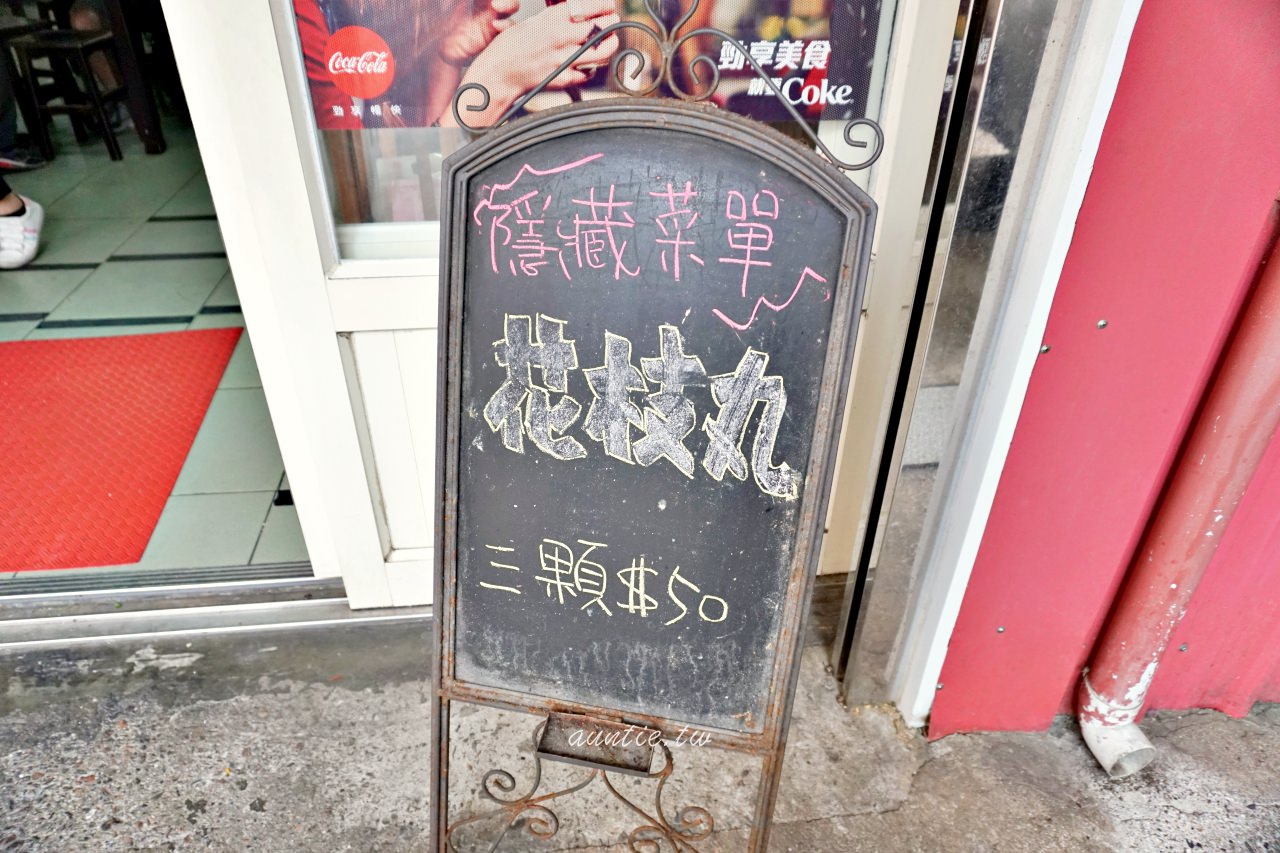 Coca-Cola
勁享暢快
勁享美食
Coke
隱藏菜單
花枝丸
三顆$50
auntie.tw